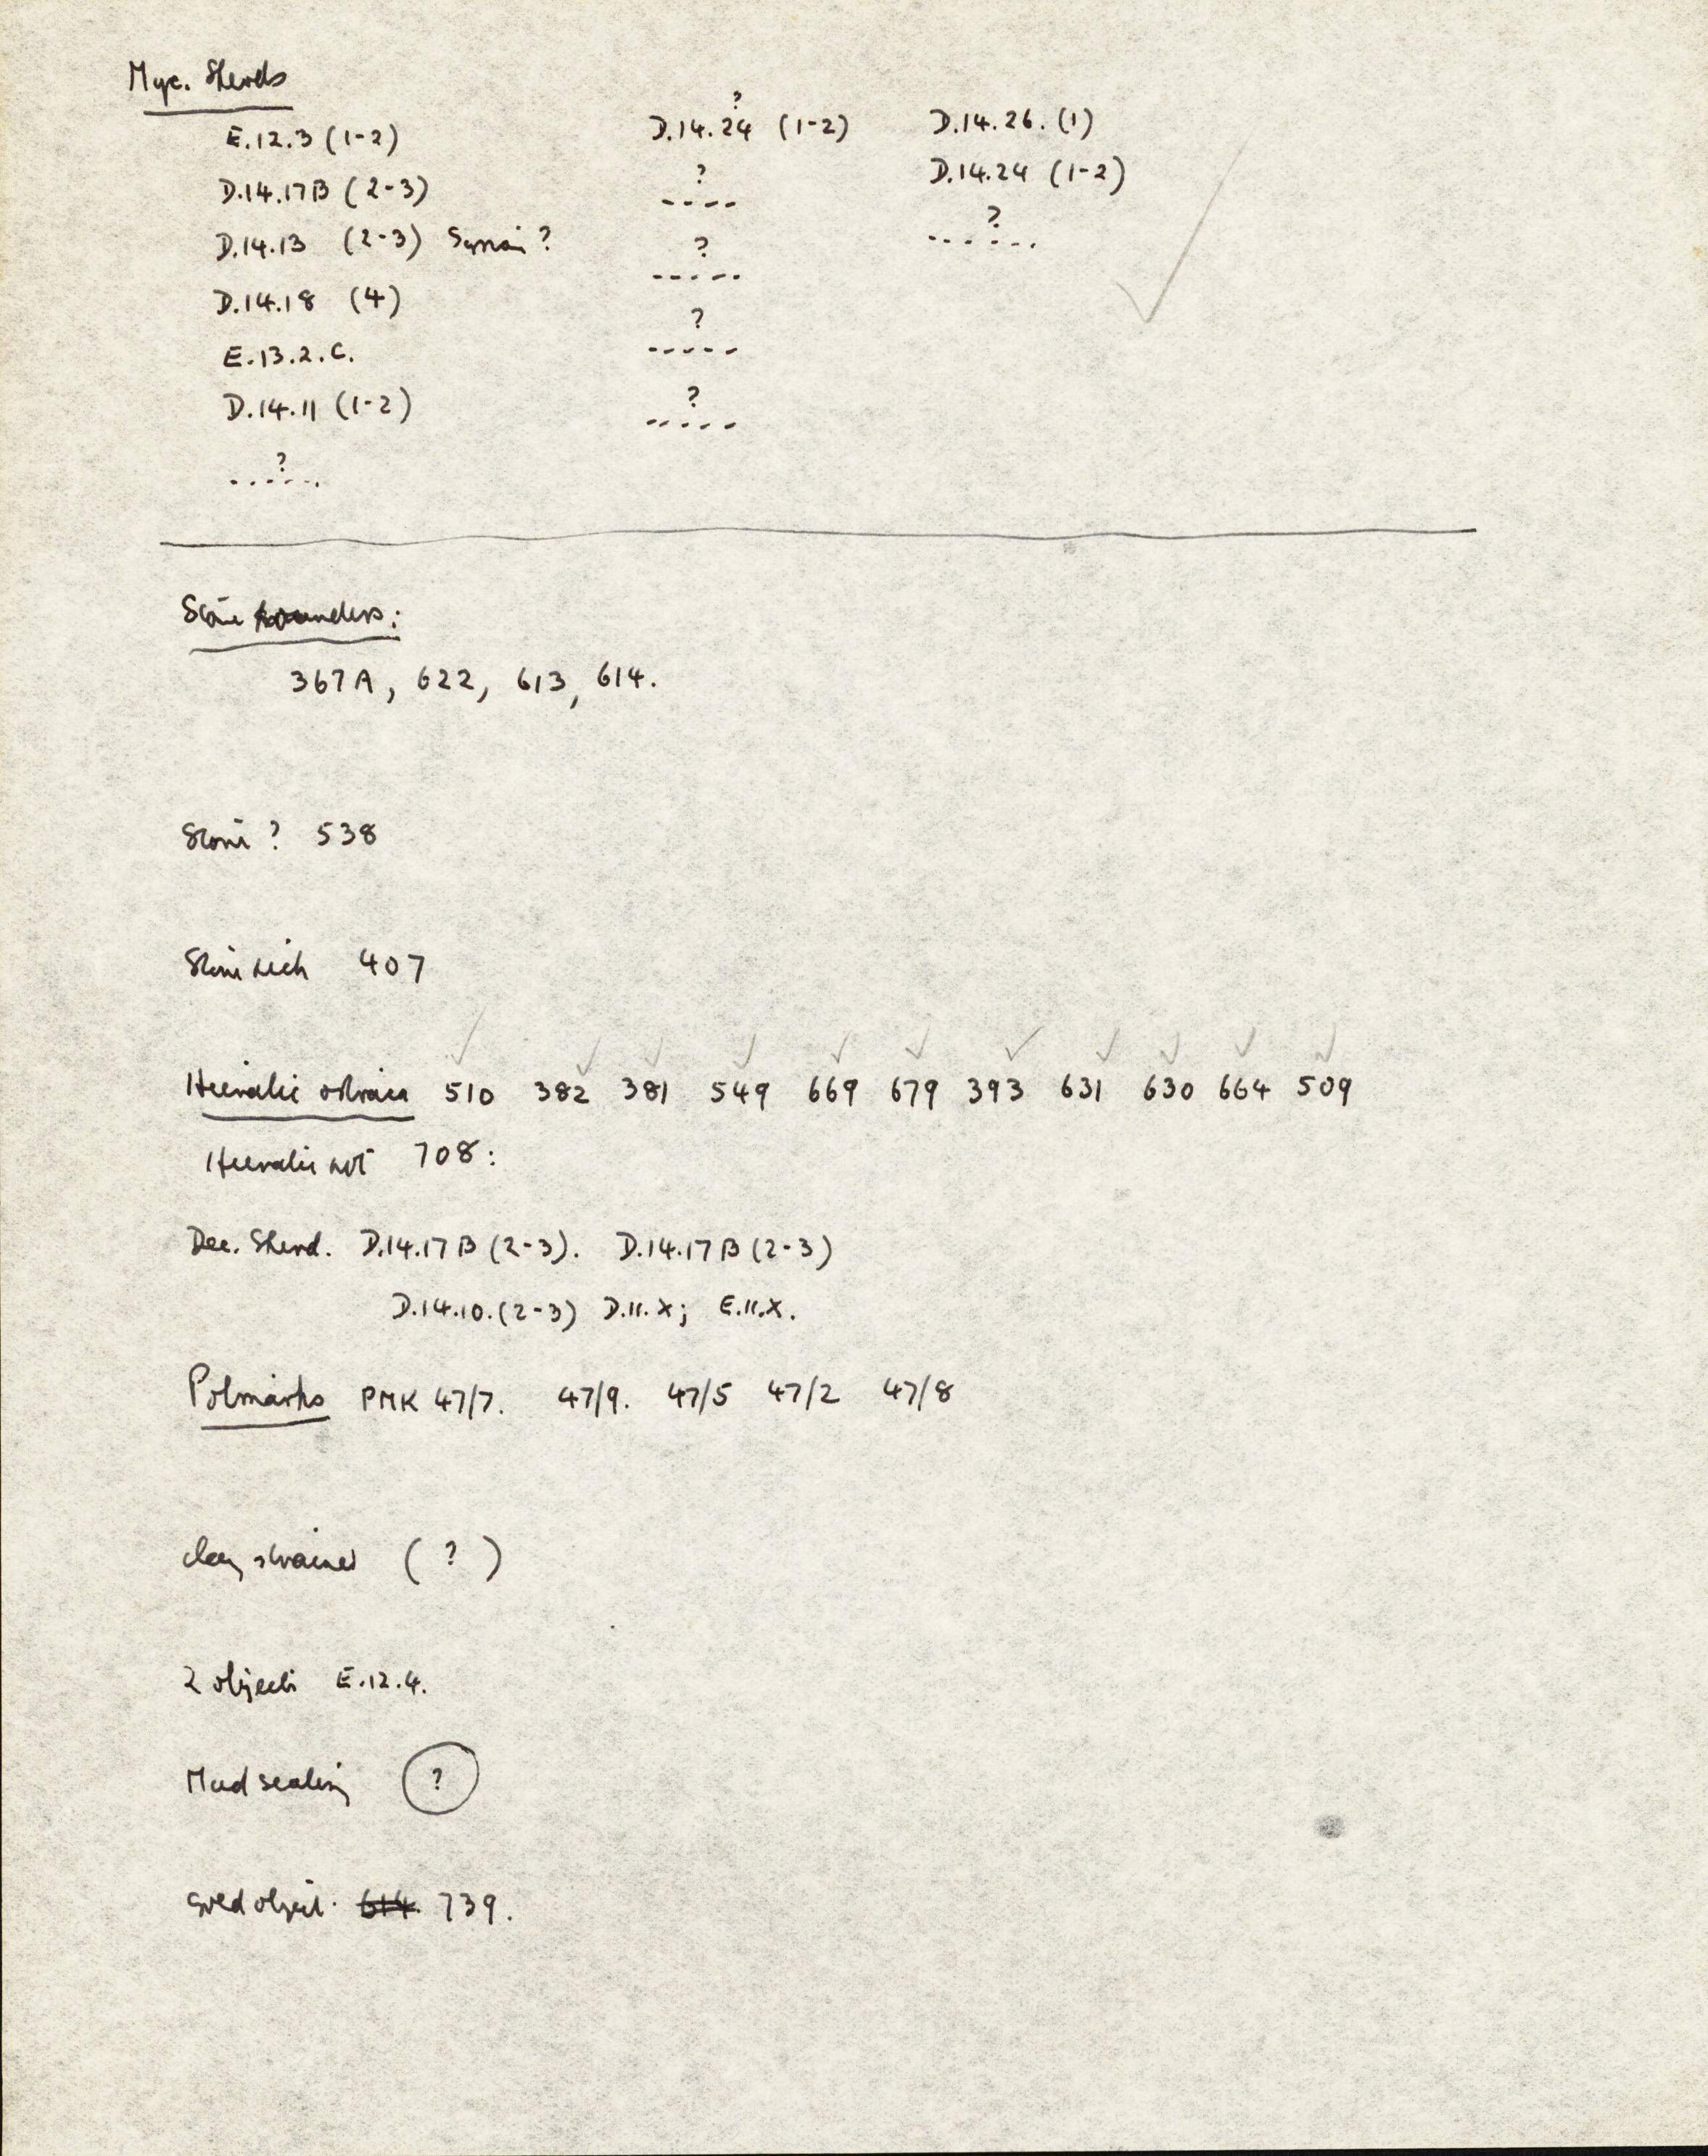 Myc. Sherds
E.12.3 (1-2)
D.14.17B (2-3)
D.14.13 (2-3) Syrian ?
D.14.18 (4)
E.13.2.C.
D.14.11 (1-2)
?
?
D.14.24 (1-2)
?
?
?
?
D.14.26. (1)
D.14.24 (1-2)
?
Stone pounders:
367A, 622, 613, 614.
Stone ? 538
Stone 407
Hieratic ostraca 510 382 381 549 669 679 393 631 630 664 509
Hieratic 708:
Dec. Sherd. D.14.17B (2-3). D.14.17B (2-3)
D.14.10.(2-3) D.11.X; E.11.X.
Potmarks PMK 47/7. 47/9. 47/5 47/2 47/8
clay strainer ( ? )
2 objects E.12.4.
Mud sealing ?
Gold object. 614. 739.